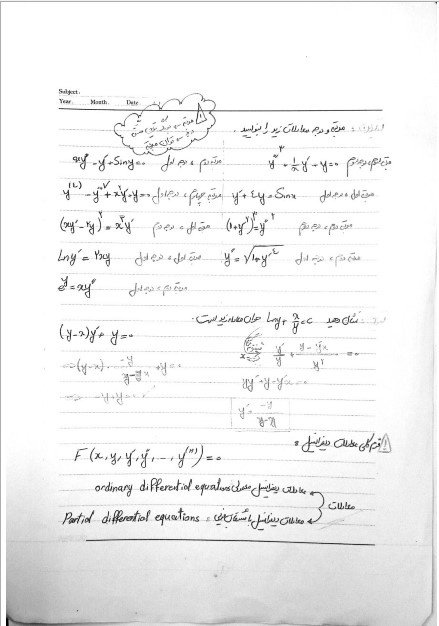 Subject.
Year. Month. Date.
مرتبه و درجه معادلات زیر را بنویسید.
xy″ - y′ + Siny = 0 مرتبه دوم، درجه اول
y″² + 1/x y′ + y = 0 مرتبه دوم، درجه دوم
y⁽⁴⁾ - y″² + x²y′ + y = 0 مرتبه چهارم، درجه اول
y′ + 4y = Sinx مرتبه اول، درجه اول
(xy′ - 2y)² = x³y′ مرتبه اول، درجه دوم
(1+y′²)³ = y″² مرتبه دوم، درجه دوم
Ln y′ = 2xy مرتبه اول، درجه اول
y″ = √1+y′⁴ مرتبه دوم، درجه اول
eʸ = xy″ مرتبه دوم، درجه اول
نشان دهید Lny + x/y = c جواب معادله زیر است.
(y-x)y′ + y = 0
y′/y + (y - y′x)/y² = 0
⇒ (y-x) · -y/(y-x) + y = 0
yy′ + y - y′x = 0
⇒ -y + y = 0
y′ = -y/(y-x)
فرم کلی معادلات دیفرانسیل:
F(x, y, y′, y″, ..., y⁽ⁿ⁾) = 0
معادلات
معادلات دیفرانسیل معمولی ordinary differential equations
معادلات دیفرانسیل با مشتقات جزئی: Partial differential equations